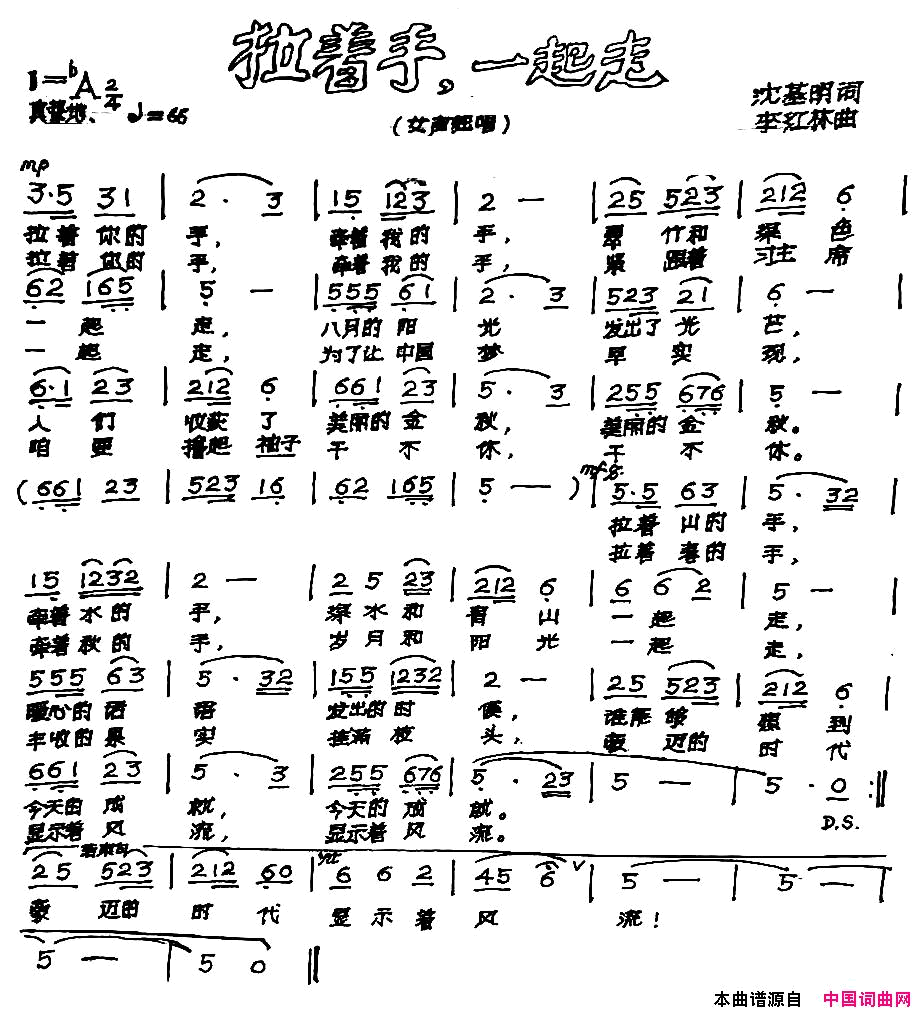 拉着手,一起走
1=♭A 2/4
真挚地、 ♩=66
沈基明词
李红林曲
(女声独唱)
mp
3·5 31 | 2· 3 | 15 123 | 2 — | 25 523 | 212 6 |
拉着你的 手, 牵着我的 手, 翠竹和 深色
拉着你的 手, 牵着我的 手, 紧跟着 习主席
62 165 | 5 — | 555 61 | 2· 3 | 523 21 | 6 — |
一起 走, 八月的阳 光 发出了光 芒,
一起 走, 为了让中国 梦 早实 现,
6·1 23 | 212 6 | 661 23 | 5· 3 | 255 676 | 5 — |
人们 收获了 美丽的金 秋, 美丽的金 秋。
咱更 撸起袖子 干不 休, 干不 休。
(661 23 | 523 16 | 62 165 | 5 — ) | 5·5 63 | 5· 32 |
mf
拉着山的 手,
拉着春的 手,
15 1232 | 2 — | 2 5 23 | 212 6 | 6 6 2 | 5 — |
牵着水的 手, 深水和 青山 一起 走,
牵着秋的 手, 岁月和 阳光 一起 走,
555 63 | 5· 32 | 155 1232 | 2 — | 25 523 | 212 6 |
暖心的话 语 发出的时 候, 谁能够 想到
丰收的果 实 挂满枝 头, 豪迈的 时代
661 23 | 5· 3 | 255 676 | 5· 23 | 5 — | 5· 0 :||
今天的成 就, 今天的成 就。
显示着风 流, 显示着风 流。
D.S.
结束句
25 523 | 212 60 | 6 6 2 | 45 6 ∨ | 5 — | 5 — |
豪迈的 时代 显示着 风 流!
5 — | 5 0 ||
本曲谱源自 中国词曲网